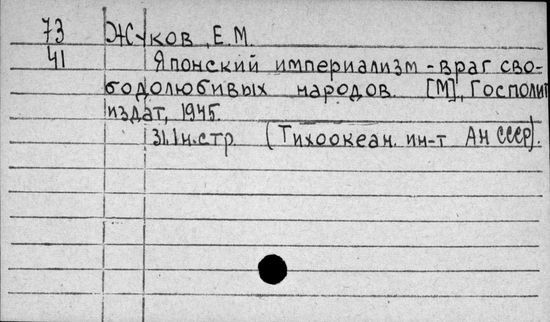 73 Жуков, Е.М.
41 Японский империализм - враг сво-
бодолюбивых народов. [М], Господит
издат, 1945.
31, 1н. стр. (Тихоокеан. ин-т АН СССР).